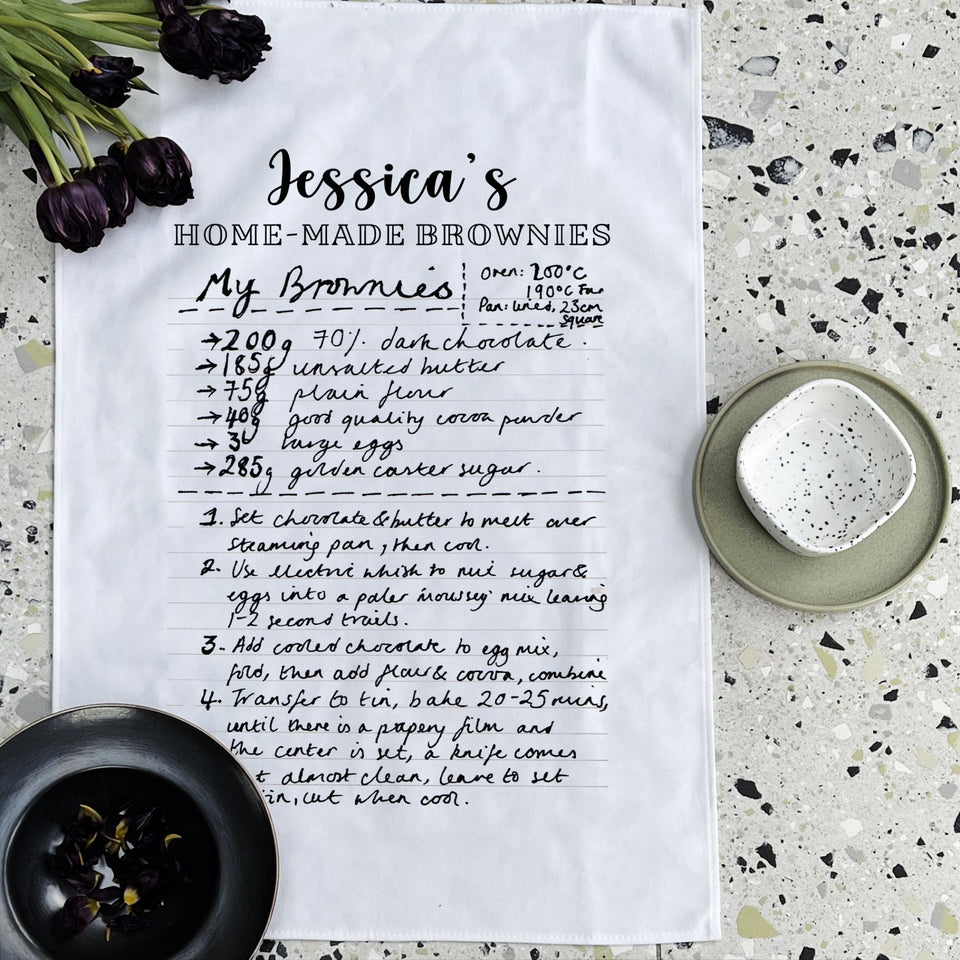 Jessica's
HOME-MADE BROWNIES
My Brownies
Oven: 200°C
190°C Fan
Pan: lined, 23cm
square
→200g 70% dark chocolate.
→185g unsalted butter
→75g plain flour
→40g good quality cocoa powder
→3 large eggs
→285g golden caster sugar.
1. Set chocolate & butter to melt over
steaming pan, then cool.
2. Use electric whisk to mix sugar &
eggs into a paler 'moussey' mix leaving
1-2 second trails.
3. Add cooled chocolate to egg mix,
fold, then add flour & cocoa, combine
4. Transfer to tin, bake 20-25 mins,
until there is a papery film and
the center is set, a knife comes
almost clean, leave to set
cut when cool.